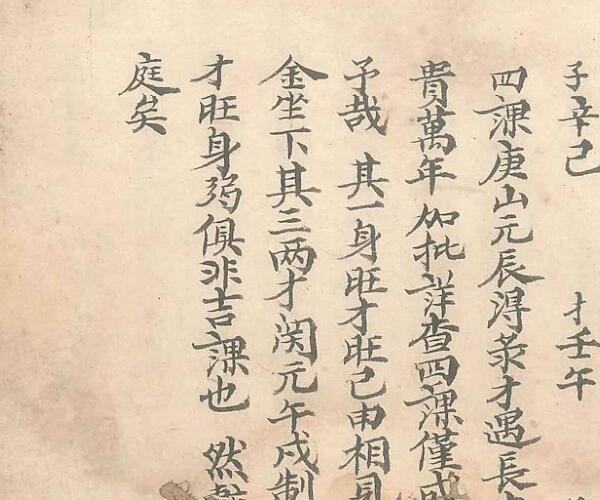 子辛己 才壬午
四課庚山元辰淂彔才遇長
貴萬年 如批詳查四課僅成
予哉 其一身旺才旺己申相見
金坐下其三两才関元午戌制
才旺身弱俱非吉課也 然
庭矣